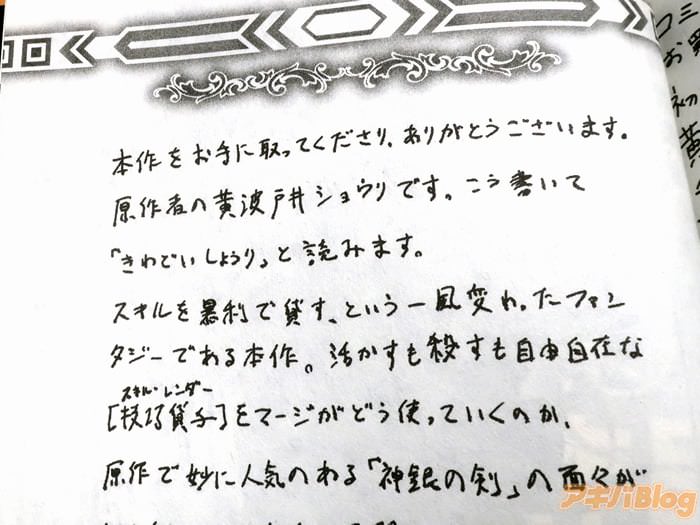 本作をお手に取ってくださり、ありがとうございます。
原作者の黄波戸井ショウリです。こう書いて
「きわどいしょうり」と読みます。
スキルを暴利で貸す、という一風変わったファン
タジーである本作。活かすも殺すも自由自在な
スキル・レンダー
[技巧貸与]をマージがどう使っていくのか、
原作で妙に人気のある「神銀の剣」の面々が
アキバBlog